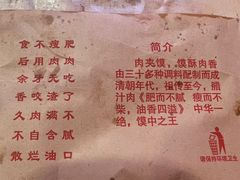 肥肉吃了不腻口
瘦肉无渣满含油
不用牙咬肉自烂
食后余香久不散
简介
肉夹馍，馍酥肉香
由三十多种调料配制而成
清朝年代，祖传至今，腊
汁肉《肥而不腻 瘦而不
柴，油香四溢》 中华一
绝，馍中之王
请保持环境卫生